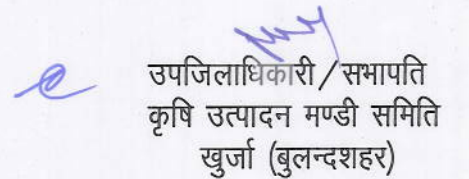 उपजिलाधिकारी/सभापति
कृषि उत्पादन मण्डी समिति
खुर्जा (बुलन्दशहर)